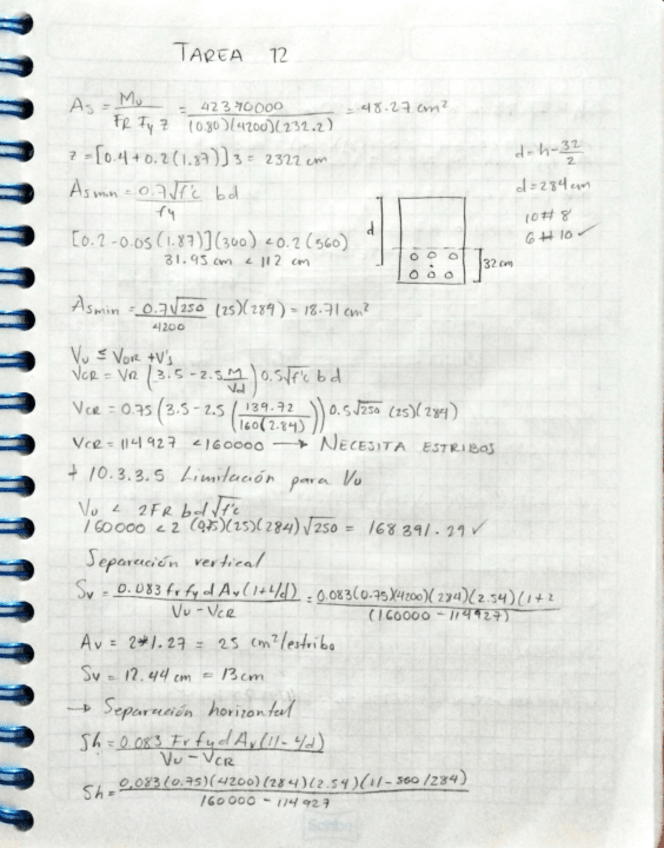 TAREA 12
As = Mu / FR Fy z = 42370000 / (0.80)(4200)(232.2) = 48.27 cm²
z = [0.4+0.2(1.87)]3 = 2322 cm
d = h - 32/2
d = 284 cm
Asmin = 0.7√f'c / fy bd
10#8
6#10 ✓
d
[0.2-0.05(1.87)](300) < 0.2(560)
31.95 cm < 112 cm
32cm
Asmin = 0.7√250 / 4200 (25)(284) = 18.71 cm²
Vu ≤ VCR + V's
VCR = VR (3.5 - 2.5 M/Vd) 0.5√f'c bd
VCR = 0.75 (3.5 - 2.5 (139.72 / 160(2.84))) 0.5√250 (25)(284)
VCR = 114927 < 160000 → NECESITA ESTRIBOS
+ 10.3.3.5 Limitación para Vu
Vu < 2FR bd√f'c
160000 < 2 (0.75)(25)(284)√250 = 168391.29 ✓
Separación vertical
Sv = 0.083 fr fy d Av (1+L/d) / Vu - VCR = 0.083(0.75)(4200)(284)(2.54)(1+2 / (160000 - 114927)
Av = 2*1.27 = 25 cm²/estribo
Sv = 12.44 cm = 13cm
→ Separación horizontal
Sh = 0.083 Fr fy d Av (11 - L/d) / Vu - VCR
Sh = 0.083(0.75)(4200)(284)(2.54)(11-560/284) / 160000 - 114927